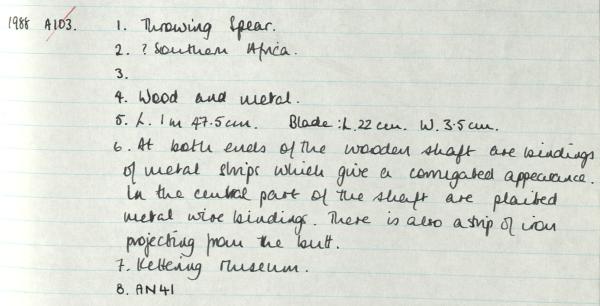 1988 A103. 1. Throwing Spear.
2. ? Southern Africa.
3.
4. Wood and metal.
5. L. 1m 47.5cm. Blade: L. 22cm. W. 3.5cm.
6. At both ends of the wooden shaft are bindings
of metal strips which give a corrugated appearance.
In the central part of the shaft are plaited
metal wire bindings. There is also a strip of iron
projecting from the butt.
7. Kettering Museum.
8. AN41